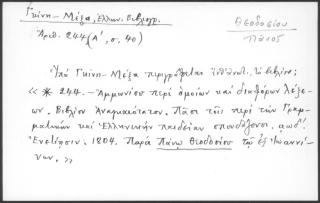 Γκίνη - Μέξα, Ἑλλην. Βιβλιογρ.
Ἀριθ. 244 (Α', σ. 40)
Θεοδοσίου
Πᾶνος
Ὑπὸ Γκίνη - Μέξα περιγράφεται τὸ βιβλίον;
« * 244. - Ἀμμωνίου περὶ ὁμοίων καὶ διαφόρων λέξε-
ων. Βιβλίον Ἀναγκαιότατον. Πᾶσι τοῖς περὶ τὴν Γραμ-
ματικὴν καὶ Ἑλληνικὴν παιδείαν σπουδάζουσι. αωδ'.
Ἐνετίῃσιν. 1804. Παρὰ Πάνῳ Θεοδοσίου τῷ ἐξ Ἰωαννί-
νων. »